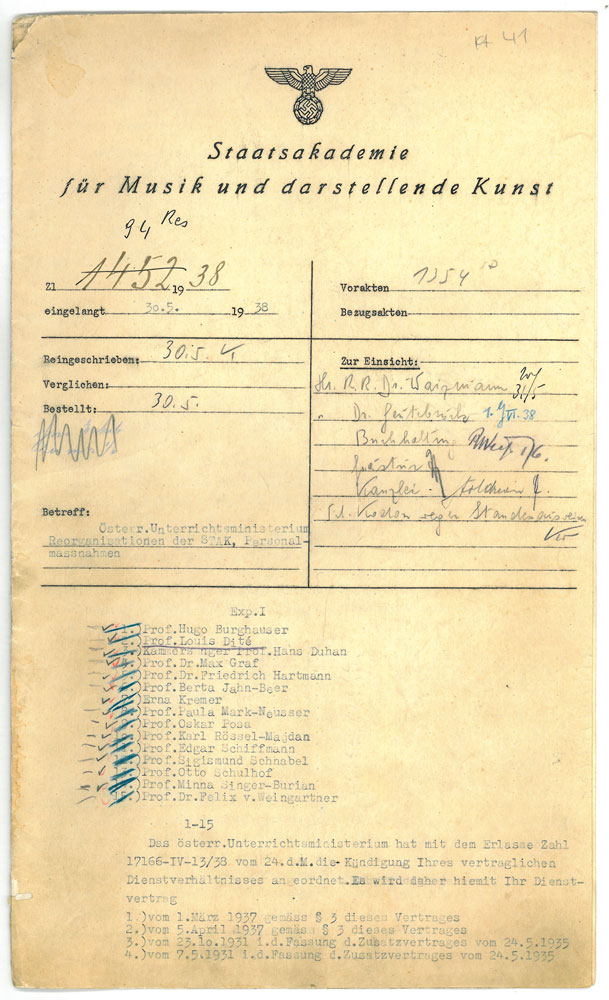 41
Staatsakademie
für Musik und darstellende Kunst
94 Res
Zl 1452 19 38
eingelangt 30.5. 19 38
Vorakten 1354
Bezugsakten
Reingeschrieben: 30.5.
Verglichen:
Bestellt: 30.5.
Zur Einsicht:
Hr. R.R. Dr. Waizmann 31/5
" Dr. 1. VI. 38
Buchhaltung 1/6.
Kanzlei
Betreff:
Österr.Unterrichtsministerium
Reorganisationen der STAK, Personal-
massnahmen
Exp.I
1.)Prof.Hugo Burghauser
2.)Prof.Louis Dité
3.)Kammersänger Prof.Hans Duhan
4.)Prof.Dr.Max Graf
5.)Prof.Dr.Friedrich Hartmann
6.)Prof.Berta Jahn-Beer
7.)Erna Kremer
8.)Prof.Paula Mark-Neusser
9.)Prof.Oskar Posa
10.)Prof.Karl Rössel-Majdan
11.)Prof.Edgar Schiffmann
12.)Prof.Sigismund Schnabel
13.)Prof.Otto Schulhof
14.)Prof.Minna Singer-Burian
15.)Prof.Dr.Felix v.Weingartner
1-15
Das österr.Unterrichtsministerium hat mit dem Erlasse Zahl
17166-IV-13/38 vom 24.d.M.die Kündigung Ihres vertraglichen
Dienstverhältnisses angeordnet.Es wird daher hiemit Ihr Dienst-
vertrag
1.)vom 1.März 1937 gemäss § 3 dieses Vertrages
2.)vom 5.April 1937 gemäss § 3 dieses Vertrages
3.)vom 23.10.1931 i.d.Fassung d.Zusatzvertrages vom 24.5.1935
4.)vom 7.5.1931 i.d.Fassung d.Zusatzvertrages vom 24.5.1935